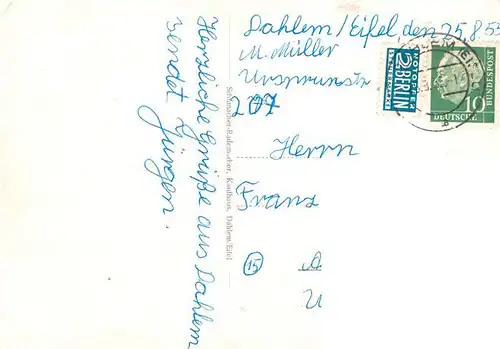 Dahlem/Eifel den 25.8.55
M. Müller
Ursprungstr
207
Herrn
Franz
15
Herzliche Grüße aus Dahlem
sendet Jürgen.
Schumacher-Rademacher, Kaufhaus, Dahlem/Eifel
NOTOPFER
2 BERLIN
STEUERMARKE
DEUTSCHE
BUNDESPOST
10